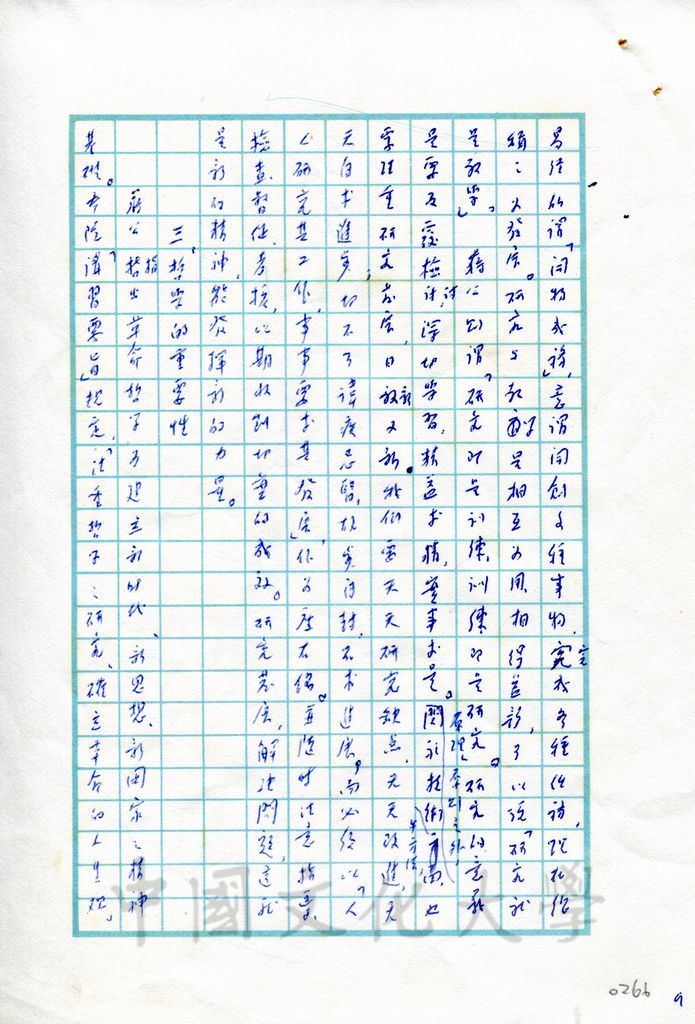 易經所謂「開物成務」,意謂開創各種事物,完成各種任務,現在經
緯之以發展。研究與教育是相互為用,相得益彰,可以說「研究就
是教學」。 蔣公剴謂「研究即是訓練,訓練即是研究。研究的意義
是學友發檢討,深切學習,精益求精,實事求是。原理原則之外,
學理重研究發展,日新又新。我們要天天研究缺點,天天改進,天
天自求進步,切不可諱疾忌醫,故步自封,不求進展。而必須以「人
人研究其工作,事事要求其發展」作為座右銘。並隨時注意指導、
檢查、督促、考核,以期收到切實的成效。研究發展,解決問題,這就
是新的精神,能發揮新的力量。
三、哲學的重要性
蔣公指出革命哲學為建立新時代、新思想、新國家之精神
基礎。本院「講習要旨」規定,「注重哲學之研究,確立革命的人生觀。
中國文化大學
0266
9